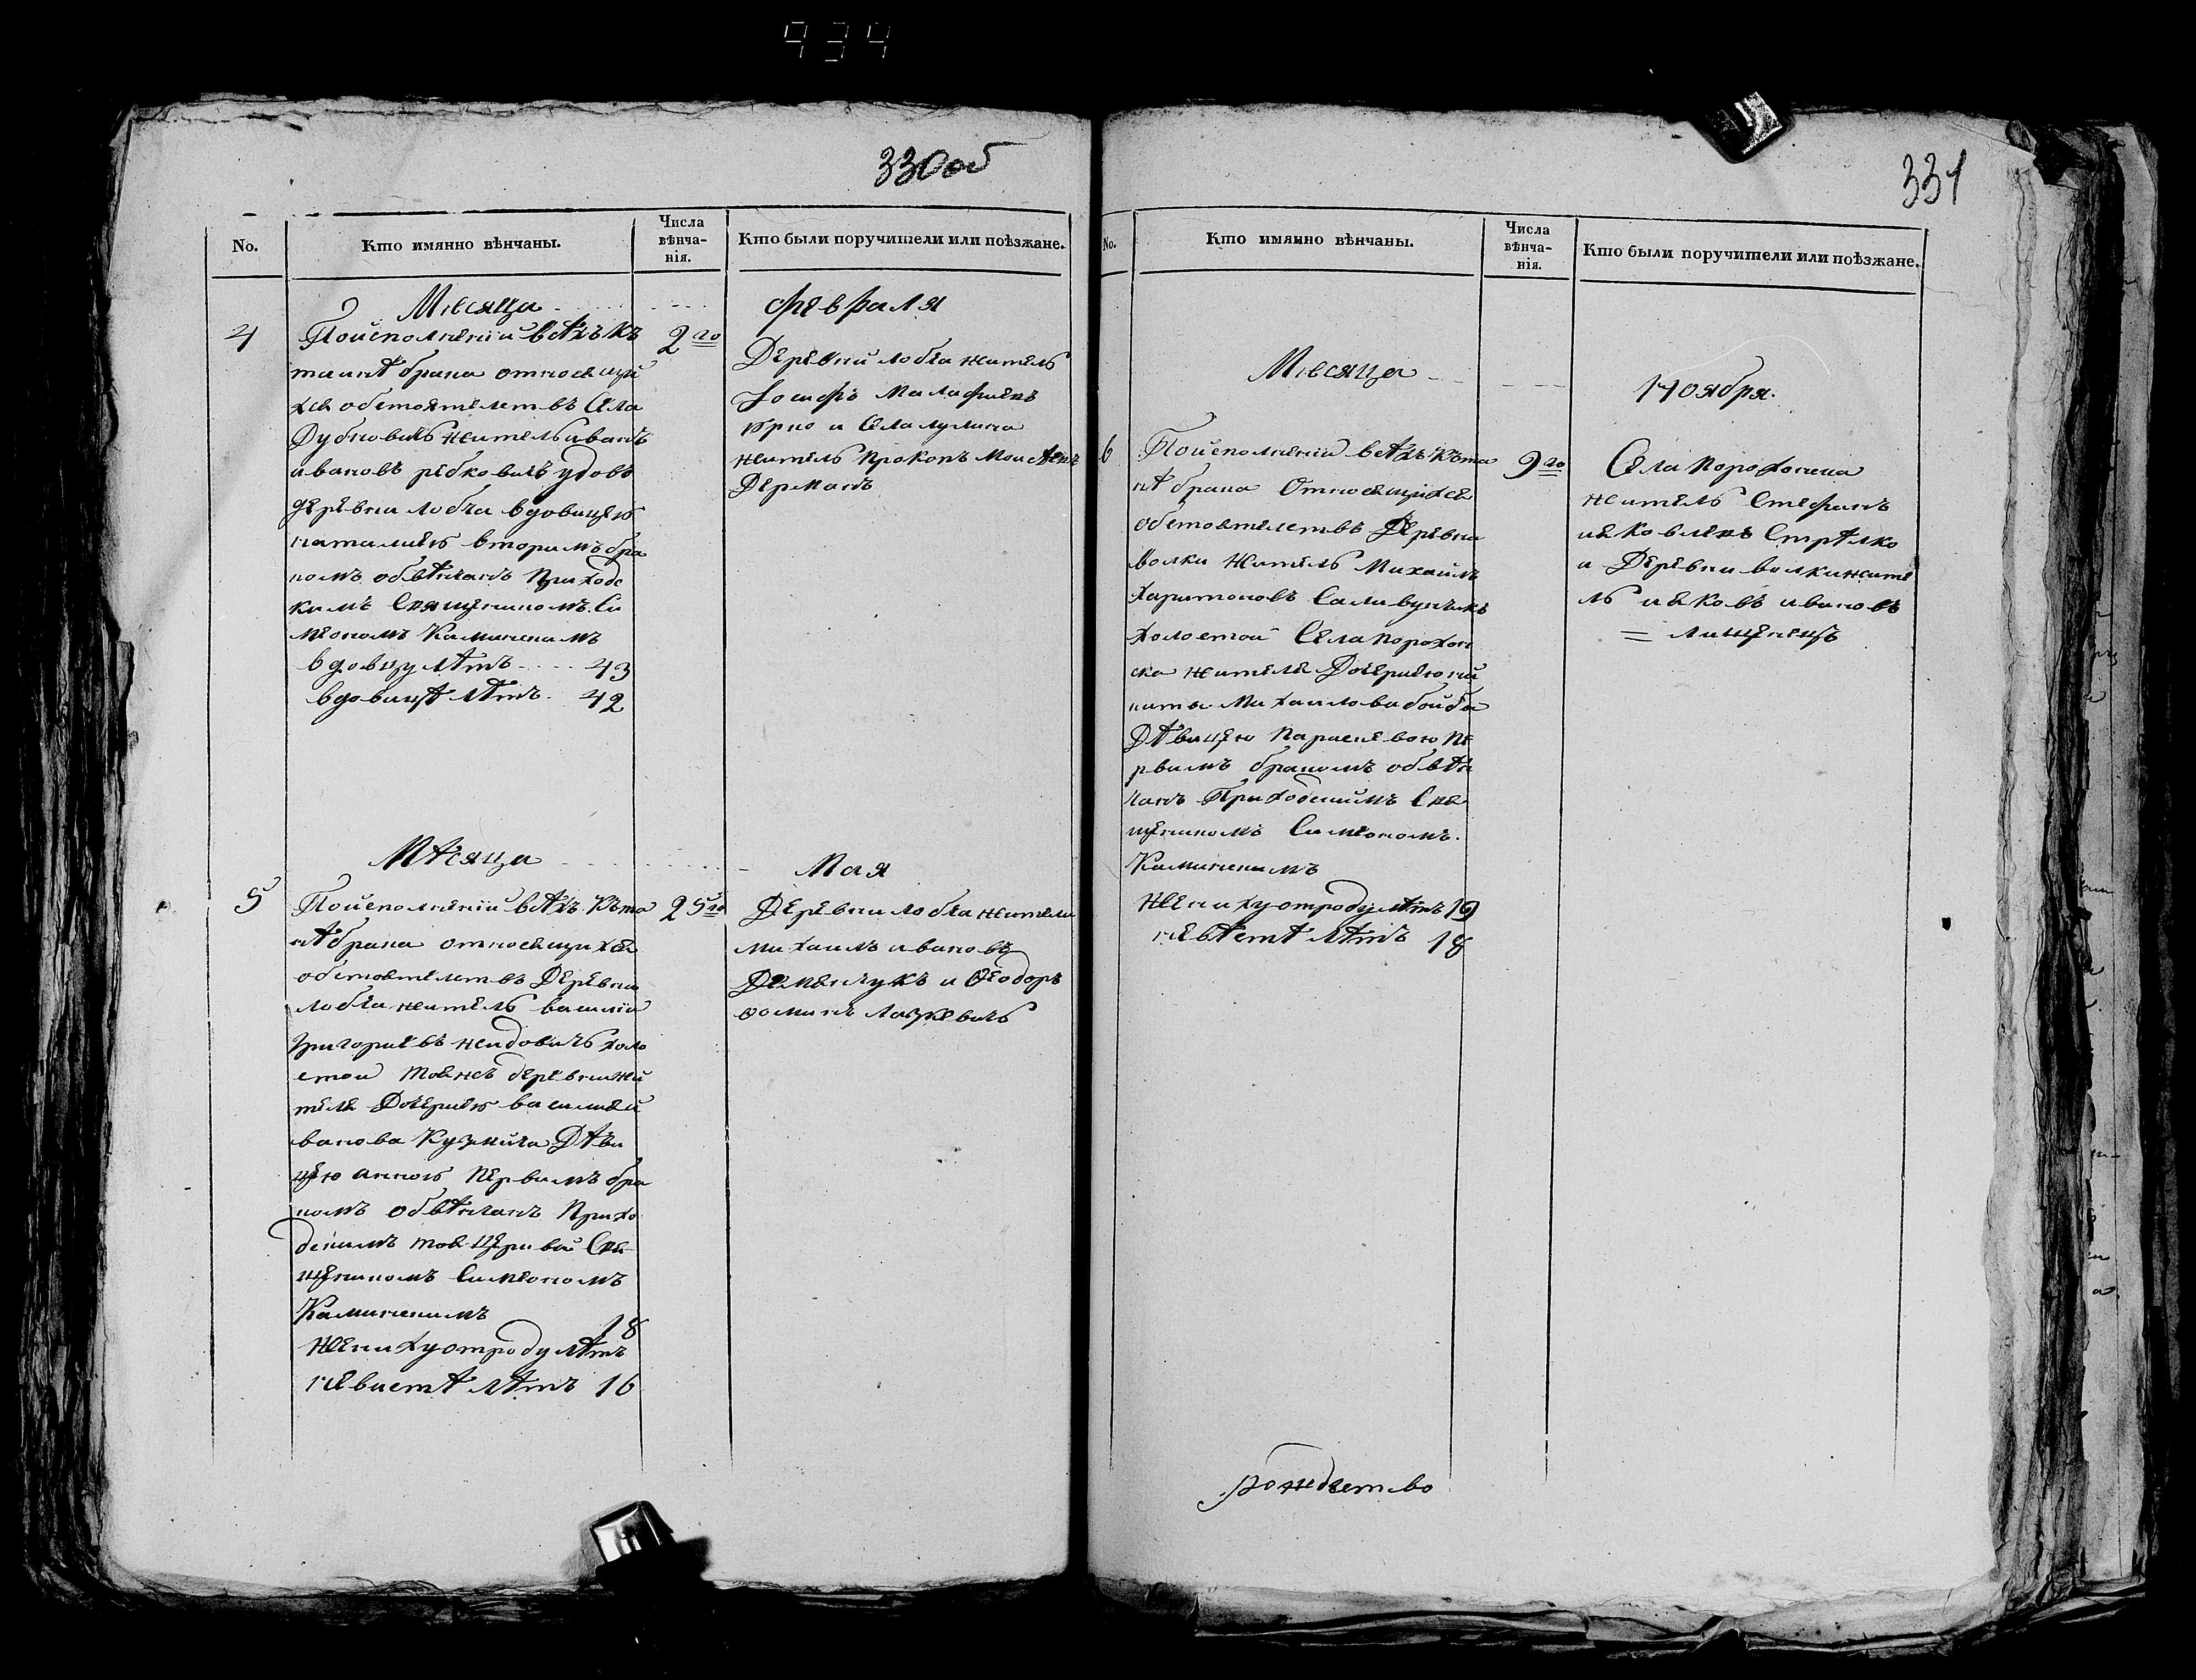 934
330об
No.
Кто имянно вѣнчаны.
Числа
вѣнча-
нія.
Кто были поручители или поѣзжане.
Мѣсяца
Февраля
4
Поисполненіи всѣхъ къ
2го
таинѣ брака относящи
хся обстоятелствъ Села
житель Иванъ
Ивановъ удовъ
деревни Лобча вдовицею
Наталиею вторимъ бра
комъ обвѣнчанъ приходс
кимъ Священикомъ Си
меономъ Каминскимъ
вдовцу лѣтъ 43
вдовицѣ лѣтъ 42
Деревни Лобча житель
Иосифъ
и Села
житель Прокопъ
Дерманъ
Мѣсяца
Мая
5
Поисполненіи всѣхъ къ та
25го
нѣ брака относящихся
обстоятелствъ Деревни
Лобча житель Василій
Григориевъ Жидовичъ холо
стой тояжъ деревни жи
теля Дочериею Василия И
ванова Кузмича Дѣви
цею Анною первимъ бра
комъ обвѣнчанъ Прихо
дскимъ тоя Церкви Свя
щеникомъ Симеономъ
Каминскимъ
Жениху отроду лѣтъ 18
невистѣ лѣтъ 16
Деревни Лобча жители
Михаилъ Ивановъ
Деменчукъ и Ѳеодоръ
Ѳоминъ
331
No.
Кто имянно вѣнчаны.
Числа
вѣнча-
нія.
Кто были поручители или поѣзжане.
Мѣсяца
Ноября.
6
Поисполненіи всѣхъ къ та
9го
нѣ брака Относящихся
обстоятелствъ Деревни
Волки Житель Михаилъ
Харитоновъ
холостой Села Порохон
ска жителя Дочериею Ни
киты Михаилова
Дѣвицею Параскевою пе
рвимъ бракомъ обвѣн
чанъ Приходскимъ Свя
щеникомъ Симеономъ
Каминскимъ
Жениху отроду лѣтъ 19
невѣстѣ лѣтъ 18
Села Порохонска
житель Стефанъ
Яковлевъ Стрѣлко
и Деревни Волки жите
ль Яковъ Ивановъ
= Лищенецъ
рождество